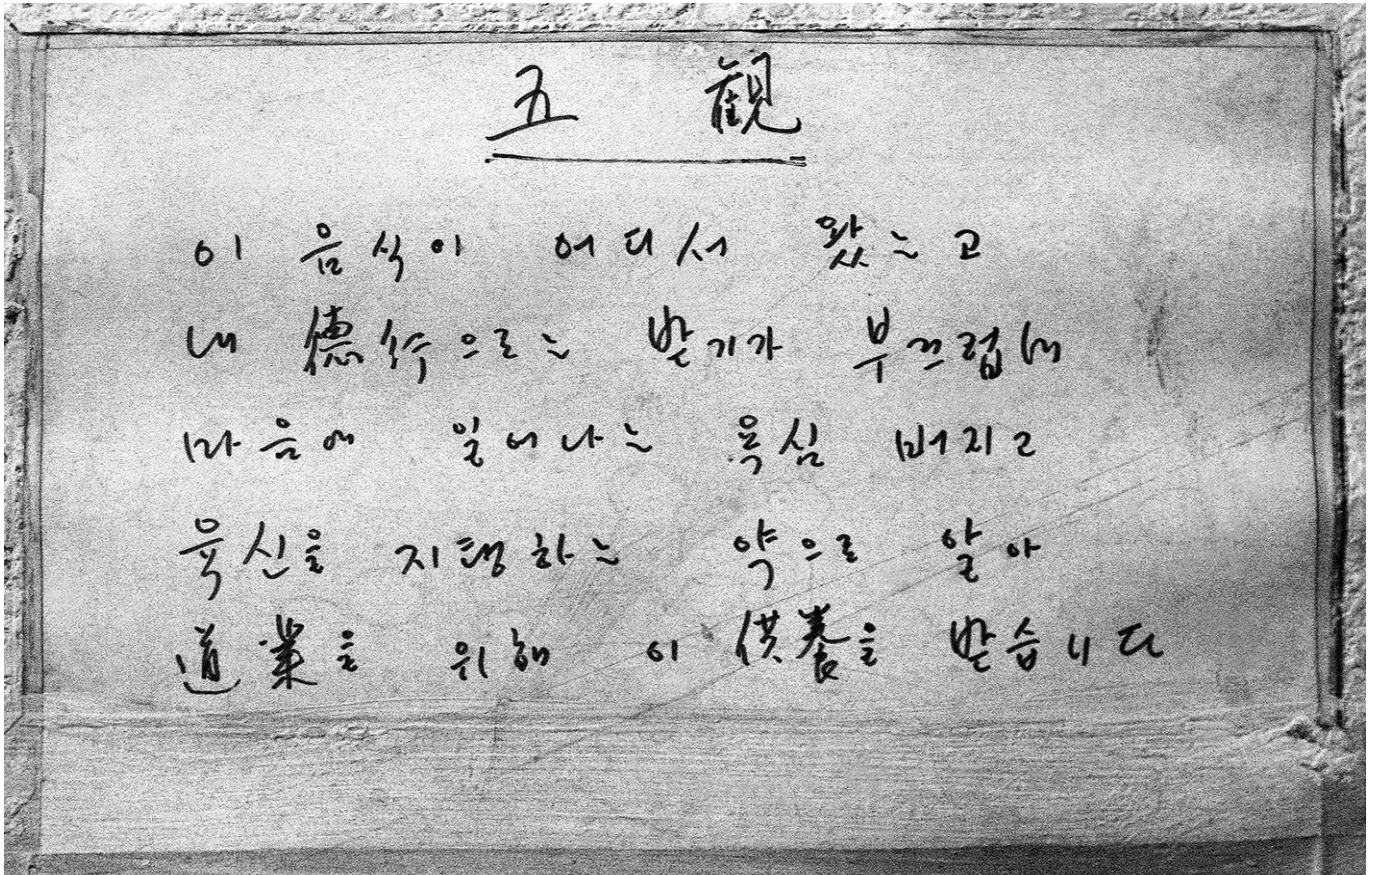 五 觀
이 음식이 어디서 왔는고
내 德行으로는 받기가 부끄럽네
마음에 일어나는 욕심 버리고
육신을 지탱하는 약으로 알아
道業을 위해 이 供養을 받습니다